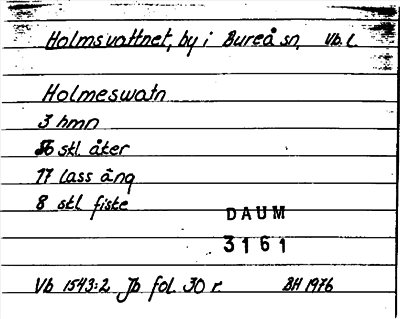 Holmsvattnet, by i Bureå sn, Vb. l.
Holmeswatn
3 hmn
56 stl åker
17 lass äng
8 stl fiske
DAUM
3161
Vb 1543:2 Jb fol. 30 r. BH 1976